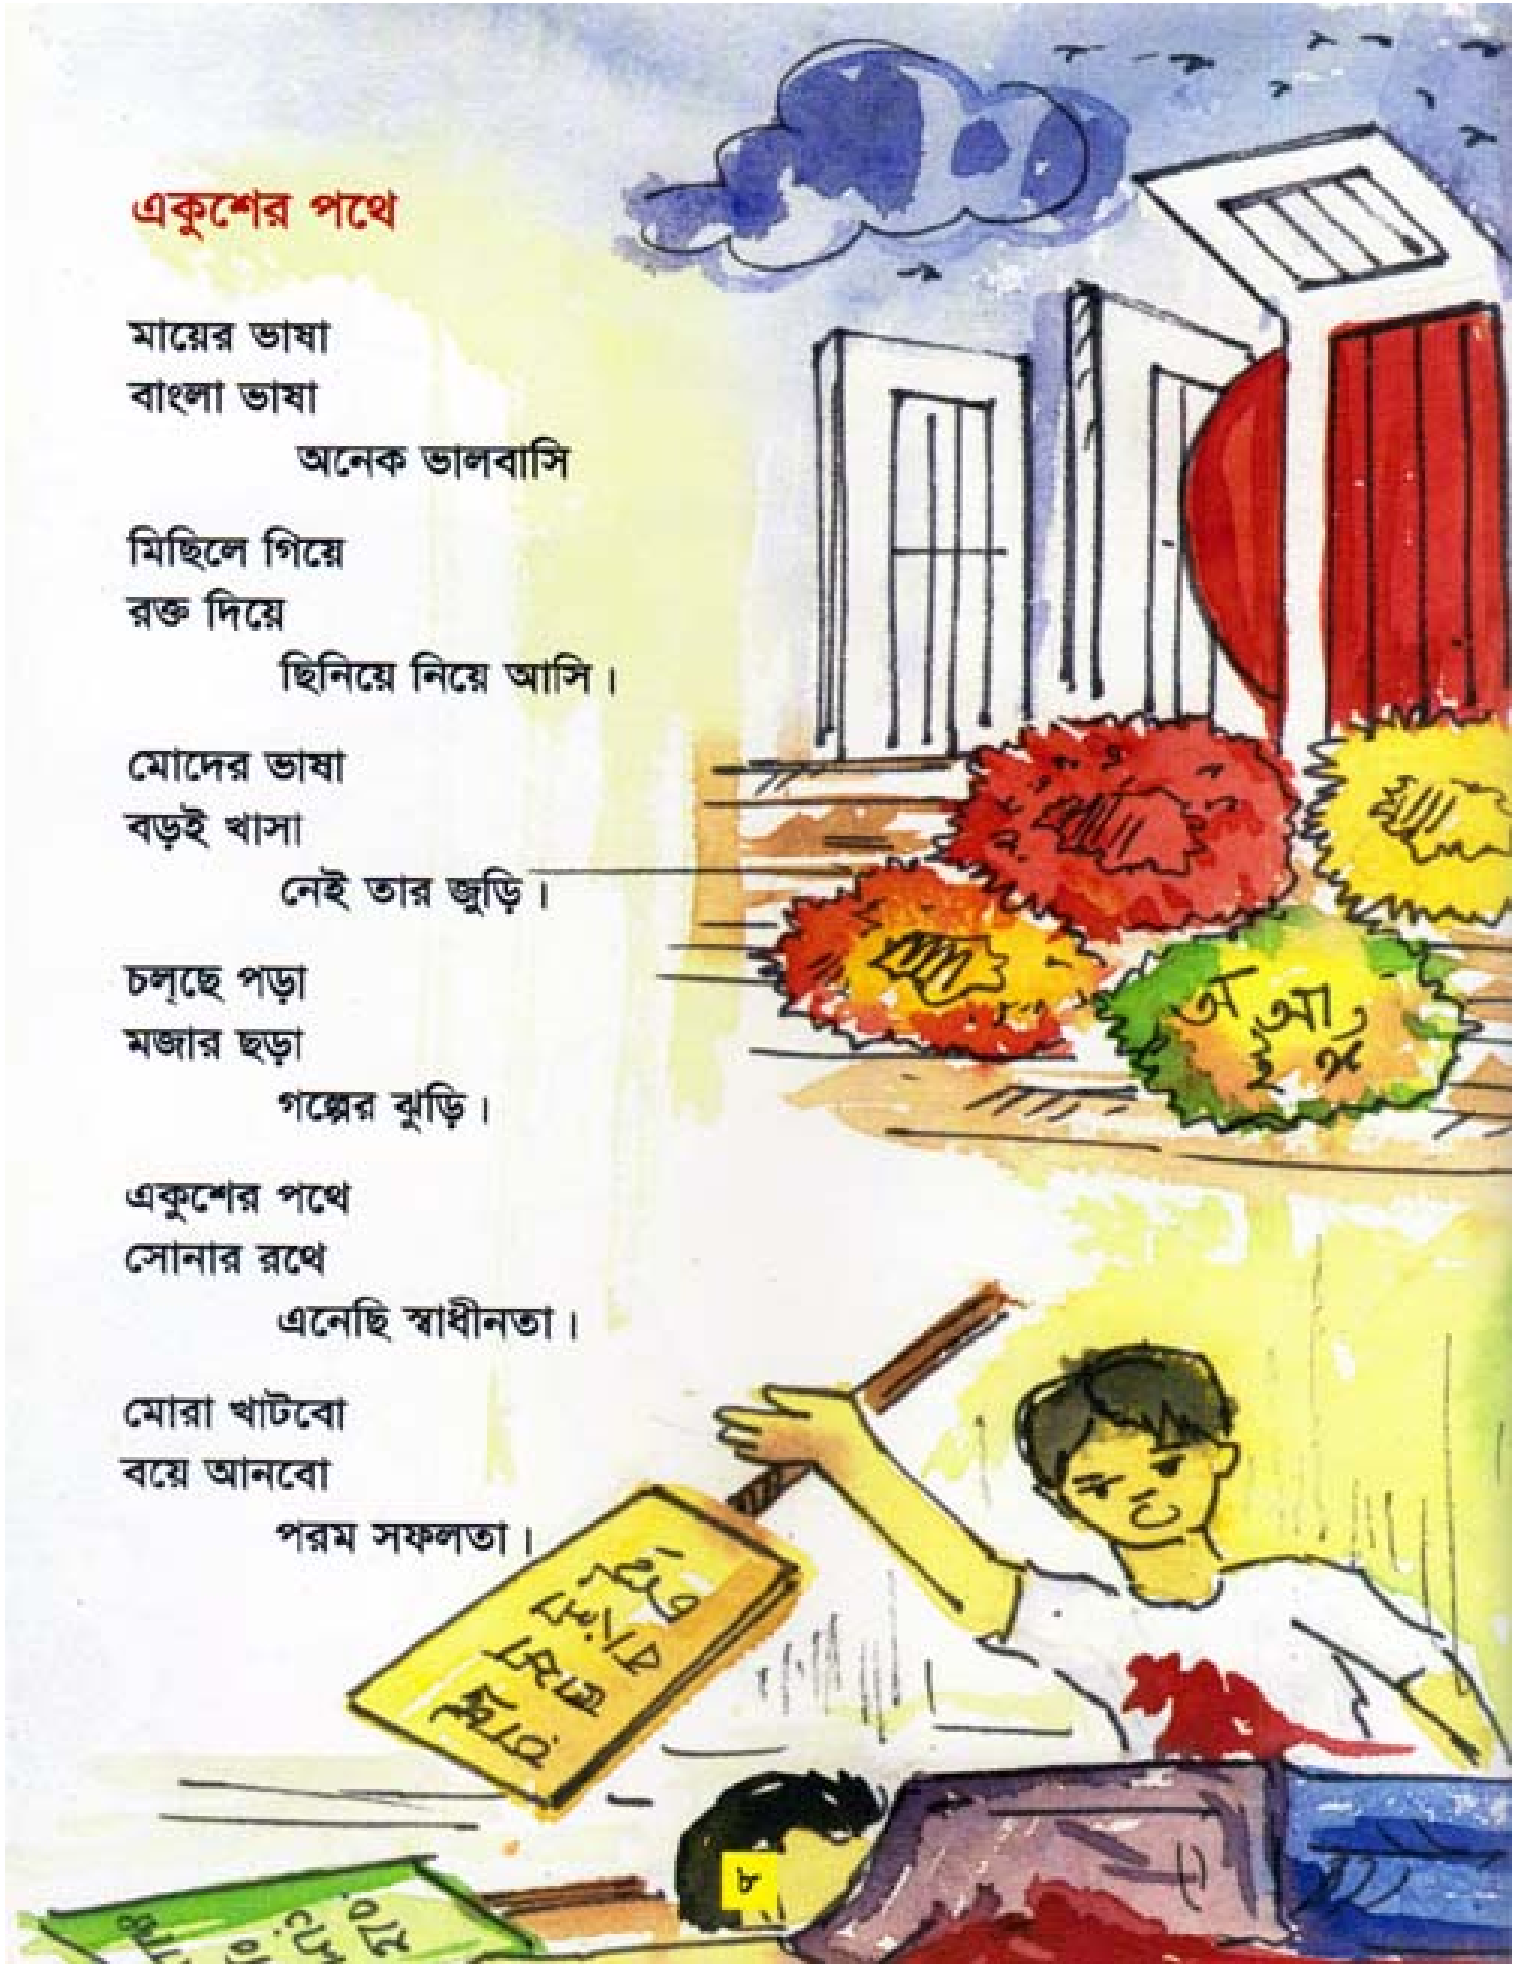 একুশের পথে
মায়ের ভাষা
বাংলা ভাষা
অনেক ভালবাসি
মিছিলে গিয়ে
রক্ত দিয়ে
ছিনিয়ে নিয়ে আসি।
মোদের ভাষা
বড়ই খাসা
নেই তার জুড়ি।
চল্‌ছে পড়া
মজার ছড়া
গল্পের ঝুড়ি।
একুশের পথে
সোনার রথে
এনেছি স্বাধীনতা।
মোরা খাটবো
বয়ে আনবো
পরম সফলতা।
অ আ
বাংলা
৮